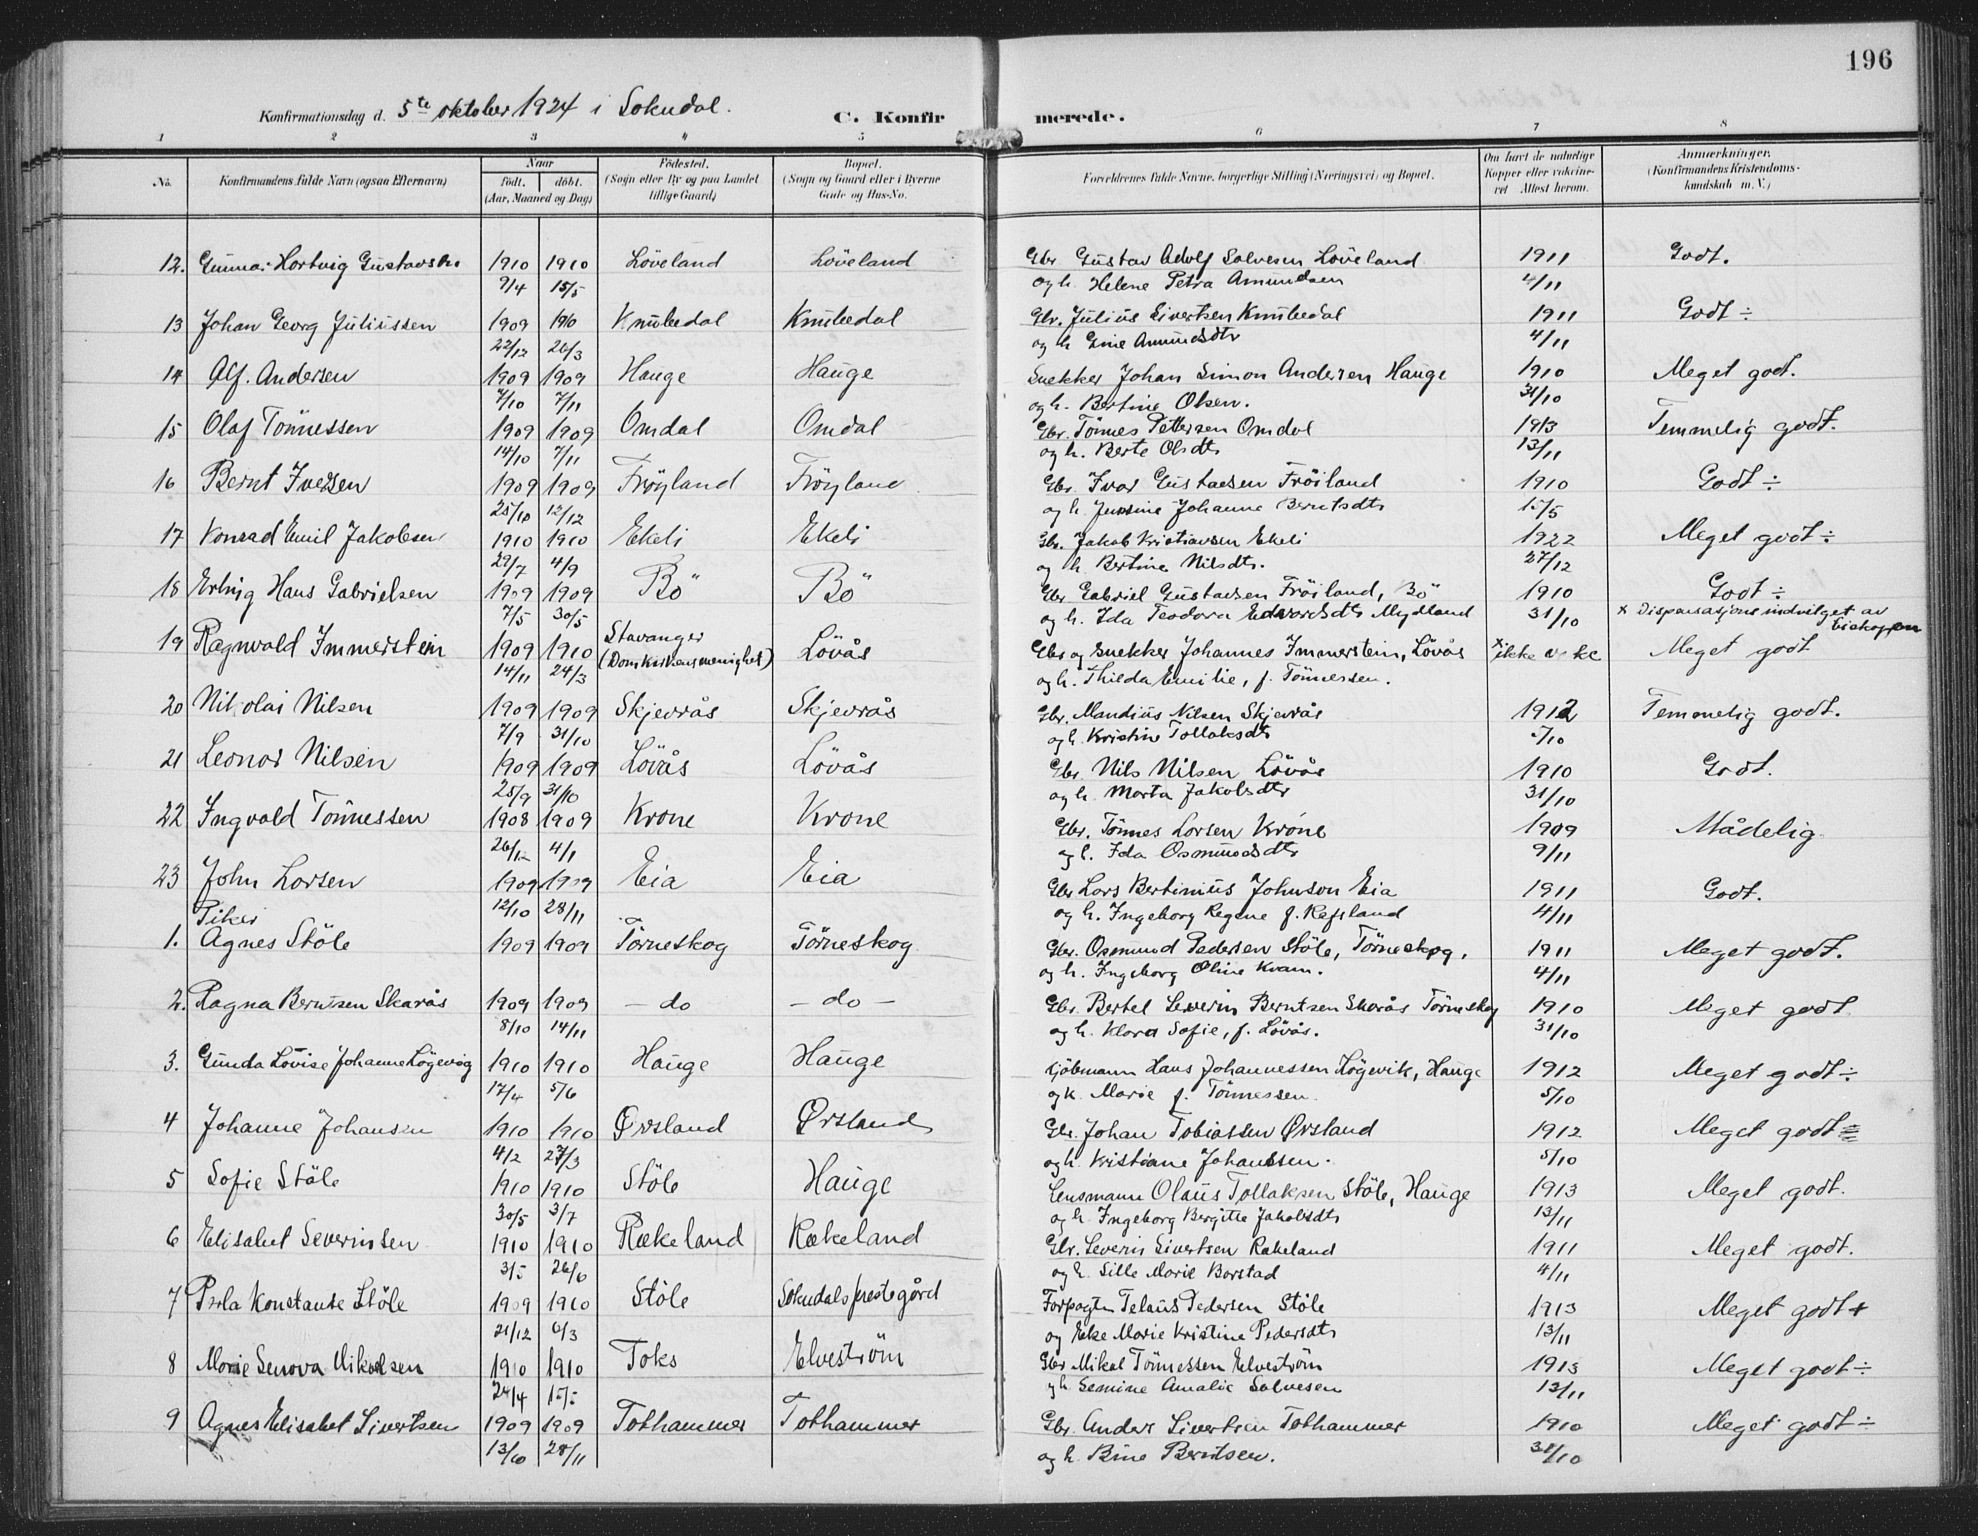 196
Konfirmationsdag d. 5te oktober 1924 i Sokndal.
C. Konfirmerede.
1 2 3 4 5 6 7 8
No. Konfirmandens fulde Navn (ogsaa Efternavn) Naar født. døbt. (Aar, Maaned og Dag) Fødested. (Sogn eller By og paa Landet tillige Gaard) Bopæl. (Sogn og Gaard eller i Byerne Gade og Hus-No. Forældrenes fulde Navne, borgerlige Stilling (Næringsvei) og Bopæl. Om havt de naturlige Kopper eller vakcineret Attest herom. Anmærkninger. (Konfirmandens Kristendomskundskab m. V.)
12. Gunnar Hartvig Gustavsen 1910 1910 Löveland Löveland Gbr. Gustav Adolf Salvesen Löveland 1911 Godt.
9/4 15/5 og h. Helene Petra Amundsen 4/11
13 Johan Georg Juliussen 1909 1910 Knubedal Knubedal Gbr. Julius Sivertsen Knubedal 1911 Godt ÷
22/12 26/3 og h Gine Amundsdtr 4/11
14 Alf. Andersen 1909 1909 Hauge Hauge Snekker Johan Simon Andersen Hauge 1910 Meget godt.
7/10 7/11 og h. Bertine Olsen. 31/10
15 Olaf Tönnessen 1909 1909 Omdal Omdal Gbr. Tönnes Pettersen Omdal 1913 Temmelig godt.
14/10 7/11 og h. Berte Olsdtr 13/11
16 Bernt Iversen 1909 1909 Fröyland Fröyland Gbr. Ivar Gustavsen Fröiland 1910 Godt ÷
25/10 12/12 og h. Jensine Johanne Berntsdtr 15/5
17 Konrad Emil Jakobsen 1910 1910 Ekeli Ekeli Gbr. Jakob Kristiansen Ekeli 1922 Meget godt ÷
29/7 4/9 og h. Bertine Nilsdtr. 27/12
18 Erling Hans Gabrielsen 1909 1909 Bö Bö Gbr Gabriel Gustavsen Fröiland, Bö 1910 Godt ÷
7/5 30/5 og h. Ida Teodora Edvardsdtr Mydland 31/10 x Dispensasjon indvilget av Biskoppen
19 Ragnvald Immerstein 1909 1910 Stavanger (Domkirkens menighet) Lövås Gbr og snekker Johannes Immerstein, Lövås x ikke vakc Meget godt
14/11 24/3 og h. Thilda Emilie, f. Tönnessen.
20 Nikolai Nilsen 1909 1909 Skjevrås Skjevrås Gbr. Mandius Nilsen Skjevrås 1912 Temmelig godt.
7/9 31/10 og h. Kristine Tollaksdtr 5/10
21 Leonar Nilsen 1909 1909 Lövås Lövås Gbr. Nils Nilsen Lövås 1910 Godt.
25/9 31/10 og h. Marta Jakobsdtr 31/10
22 Ingvald Tönnessen 1908 1909 Krone Krone Gbr. Tönnes Larsen Krone 1909 Mådelig.
26/12 4/1 og h. Ida Osmundsdtr 9/11
23 John Larsen 1909 1909 Eia Eia Gbr Lars Bertinius Johnson Eia 1911 Godt.
12/10 28/11 og h. Ingeborg Regine f. Refsland 4/11
Piker
1. Agnes Stöle 1909 1909 Törneskog Törneskog Gbr. Osmund Pedersen Stöle, Törneskog. 1911 Meget godt.
og h. Ingeborg Oline Kvam. 4/11
2. Ragna Berntsen Skarås 1909 1909 – do – do – Gbr. Bertel Severin Berntsen Skarås Törneskog 1910 Meget godt.
8/10 14/11 og h. Klara Sofie, f. Lövås. 31/10
3. Gunda Lovise Johanne Högevåg 1910 1910 Hauge Hauge Kjöbmann Hans Johannessen Högevik, Hauge 1912 Meget godt ÷
17/4 5/6 og h. Marie f. Tönnessen. 5/10
4 Johanne Johansen 1910 1910 Ørsland Ørsland Gbr. Johan Tobiassen Ørsland 1912 Meget godt
4/2 27/3 og h. Kristiane Johannsen. 5/10
5 Sofie Stöle 1910 1910 Stöle Hauge Lensmann Olaus Tollaksen Stöle, Hauge 1913 Meget godt.
30/5 3/7 og h. Ingeborg Bergitte Jakobsdtr 13/11
6 Elisabet Severinsen 1910 1910 Rækeland Rækeland Gbr. Severin Sivertsen Rakeland 1911 Meget godt.
3/5 26/6 og h. Sille Marie Barstad 4/11
7 Perla Konstanse Stöle 1909 1910 Stöle Sokndals prestegård Forpagter Telaus Pedersen Stöle 1913 Meget godt +
21/12 6/3 og Eke Marie Kristine Pedersdtr 13/11
8 Marie Senova Mikalsen 1910 1910 Toks Elveström Gbr Mikal Tönnessen Elveström 1913 Meget godt ÷
24/4 15/5 og h. Semine Amalie Salvesen 13/11
9 Agnes Elisabet Sivertsen 1909 1909 Tothammer Tothammer Gbr. Anders Sivertsen Tothammer 1910 Meget godt ÷
13/6 28/11 og h. Bine Berntsen. 31/10